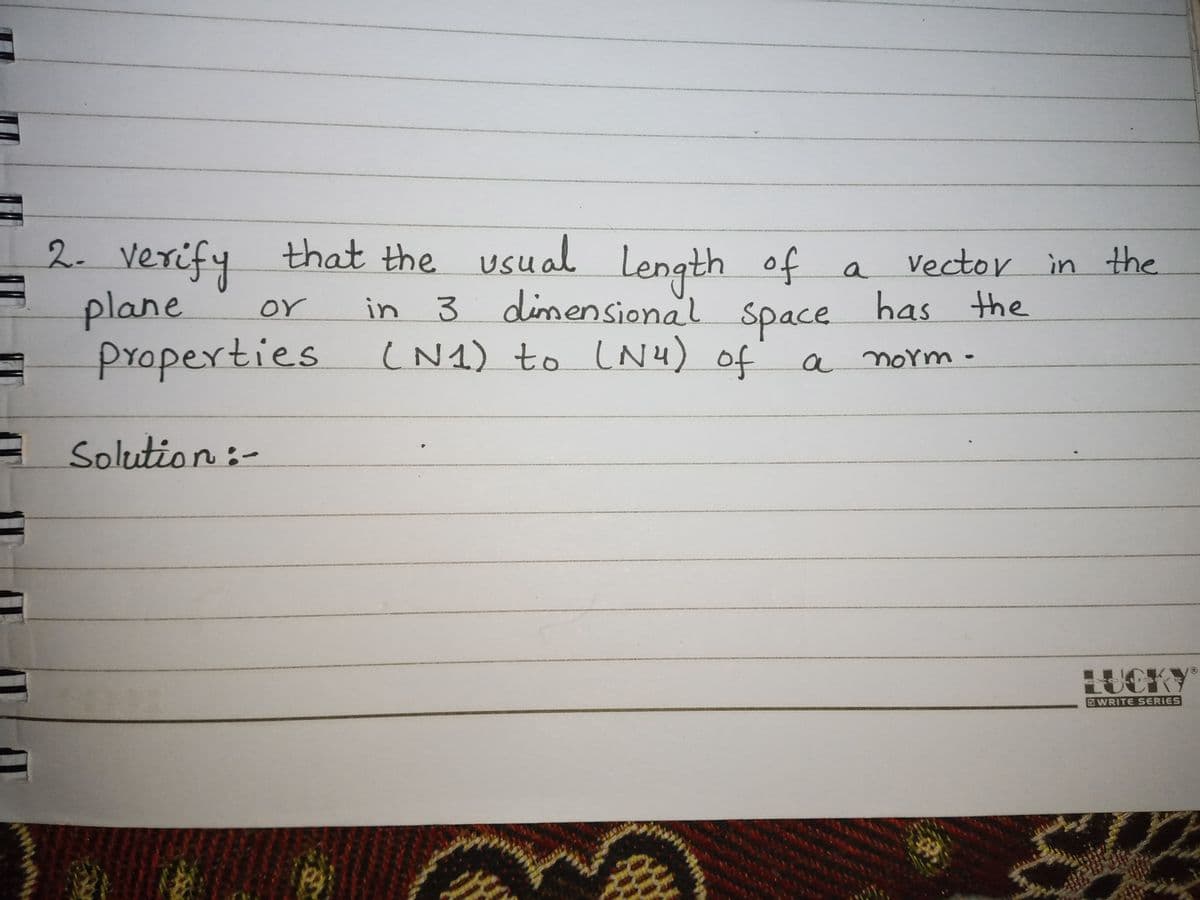 2- verify that the usual Length of a vector in the
plane or in 3 dimensional space has the
properties (N1) to (N4) of a norm -
Solution :-
LUCKY®
WRITE SERIES